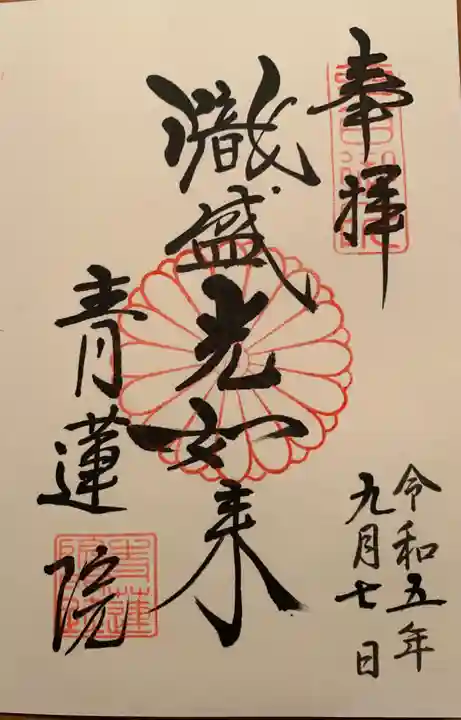 奉拝
熾盛光如来
青蓮院
令和五年
九月七日